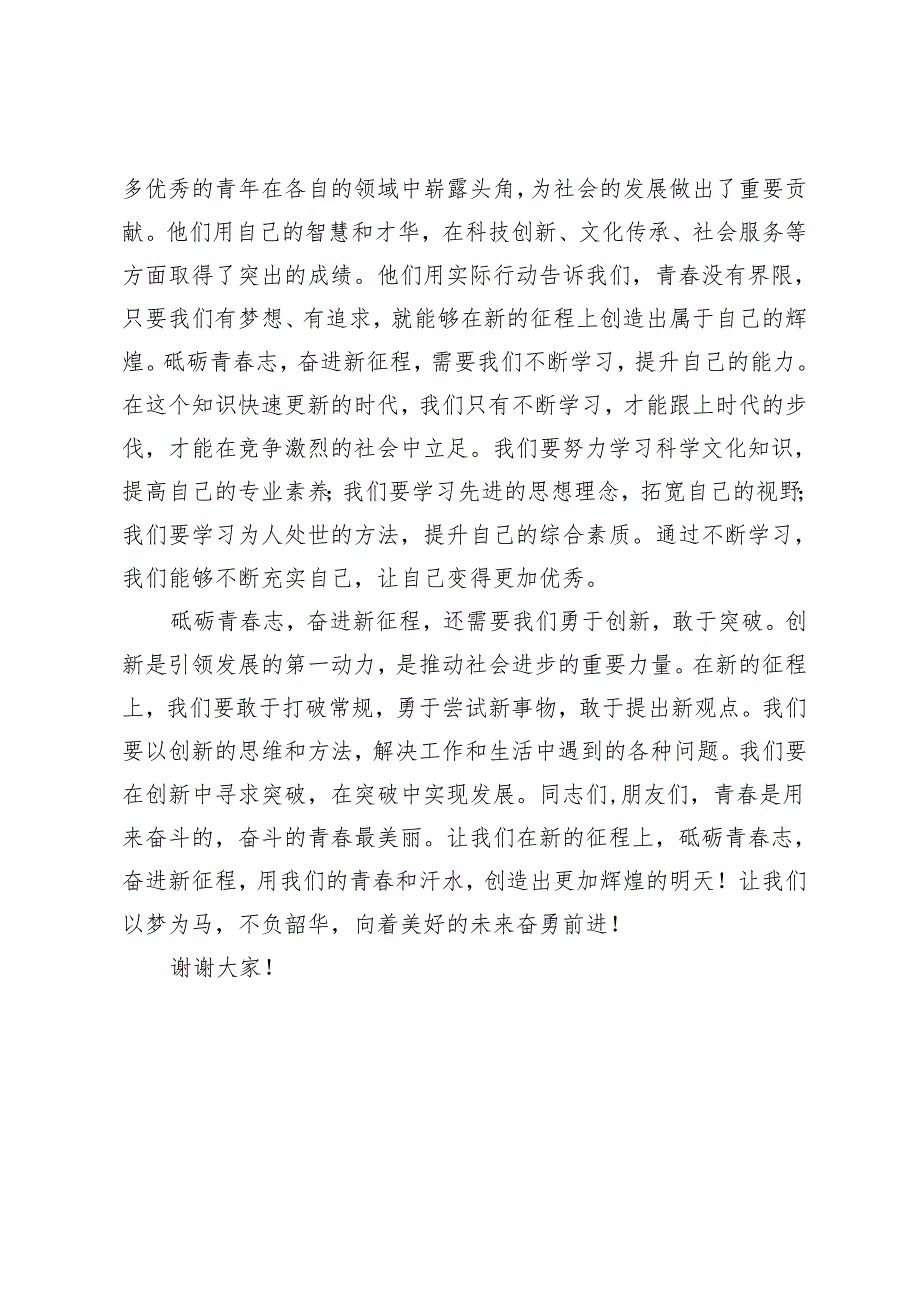 多优秀的青年在各自的领域中崭露头角，为社会的发展做出了重要贡
献。他们用自己的智慧和才华，在科技创新、文化传承、社会服务等
方面取得了突出的成绩。他们用实际行动告诉我们，青春没有界限，
只要我们有梦想、有追求，就能够在新的征程上创造出属于自己的辉
煌。砥砺青春志，奋进新征程，需要我们不断学习，提升自己的能力。
在这个知识快速更新的时代，我们只有不断学习，才能跟上时代的步
伐，才能在竞争激烈的社会中立足。我们要努力学习科学文化知识，
提高自己的专业素养；我们要学习先进的思想理念，拓宽自己的视野；
我们要学习为人处世的方法，提升自己的综合素质。通过不断学习，
我们能够不断充实自己，让自己变得更加优秀。
砥砺青春志，奋进新征程，还需要我们勇于创新，敢于突破。创
新是引领发展的第一动力，是推动社会进步的重要力量。在新的征程
上，我们要敢于打破常规，勇于尝试新事物，敢于提出新观点。我们
要以创新的思维和方法，解决工作和生活中遇到的各种问题。我们要
在创新中寻求突破，在突破中实现发展。同志们,朋友们，青春是用
来奋斗的，奋斗的青春最美丽。让我们在新的征程上，砥砺青春志，
奋进新征程，用我们的青春和汗水，创造出更加辉煌的明天！让我们
以梦为马，不负韶华，向着美好的未来奋勇前进！
谢谢大家！